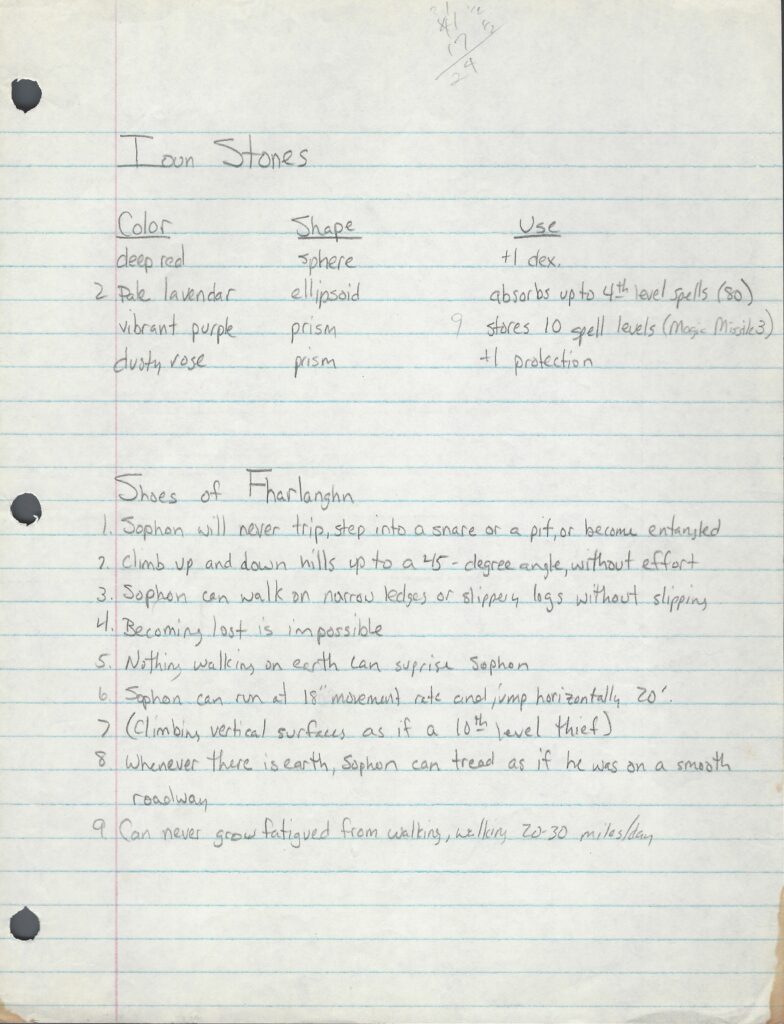 41
17
24
Ioun Stones
Color Shape Use
deep red sphere +1 dex.
2 Pale lavendar ellipsoid absorbs up to 4th level spells (80)
vibrant purple prism 9 stores 10 spell levels (Magic Missile 3)
dusty rose prism +1 protection
Shoes of Fharlanghn
1. Sophon will never trip, step into a snare or a pit, or become entangled
2. Climb up and down hills up to a 45-degree angle, without effort
3. Sophon can walk on narrow ledges or slippery logs without slipping
4. Becoming lost is impossible
5. Nothing walking on earth can suprise Sophon
6. Sophon can run at 18" movement rate and jump horizontally 20'.
7 (Climbing vertical surfaces as if a 10th level thief)
8. Whenever there is earth, Sophon can tread as if he was on a smooth
roadway
9. Can never grow fatigued from walking, walking 20-30 miles/day